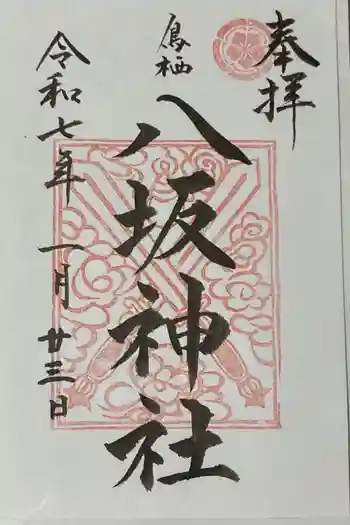 奉拝
鳥栖
八坂神社
令和七年一月廿三日